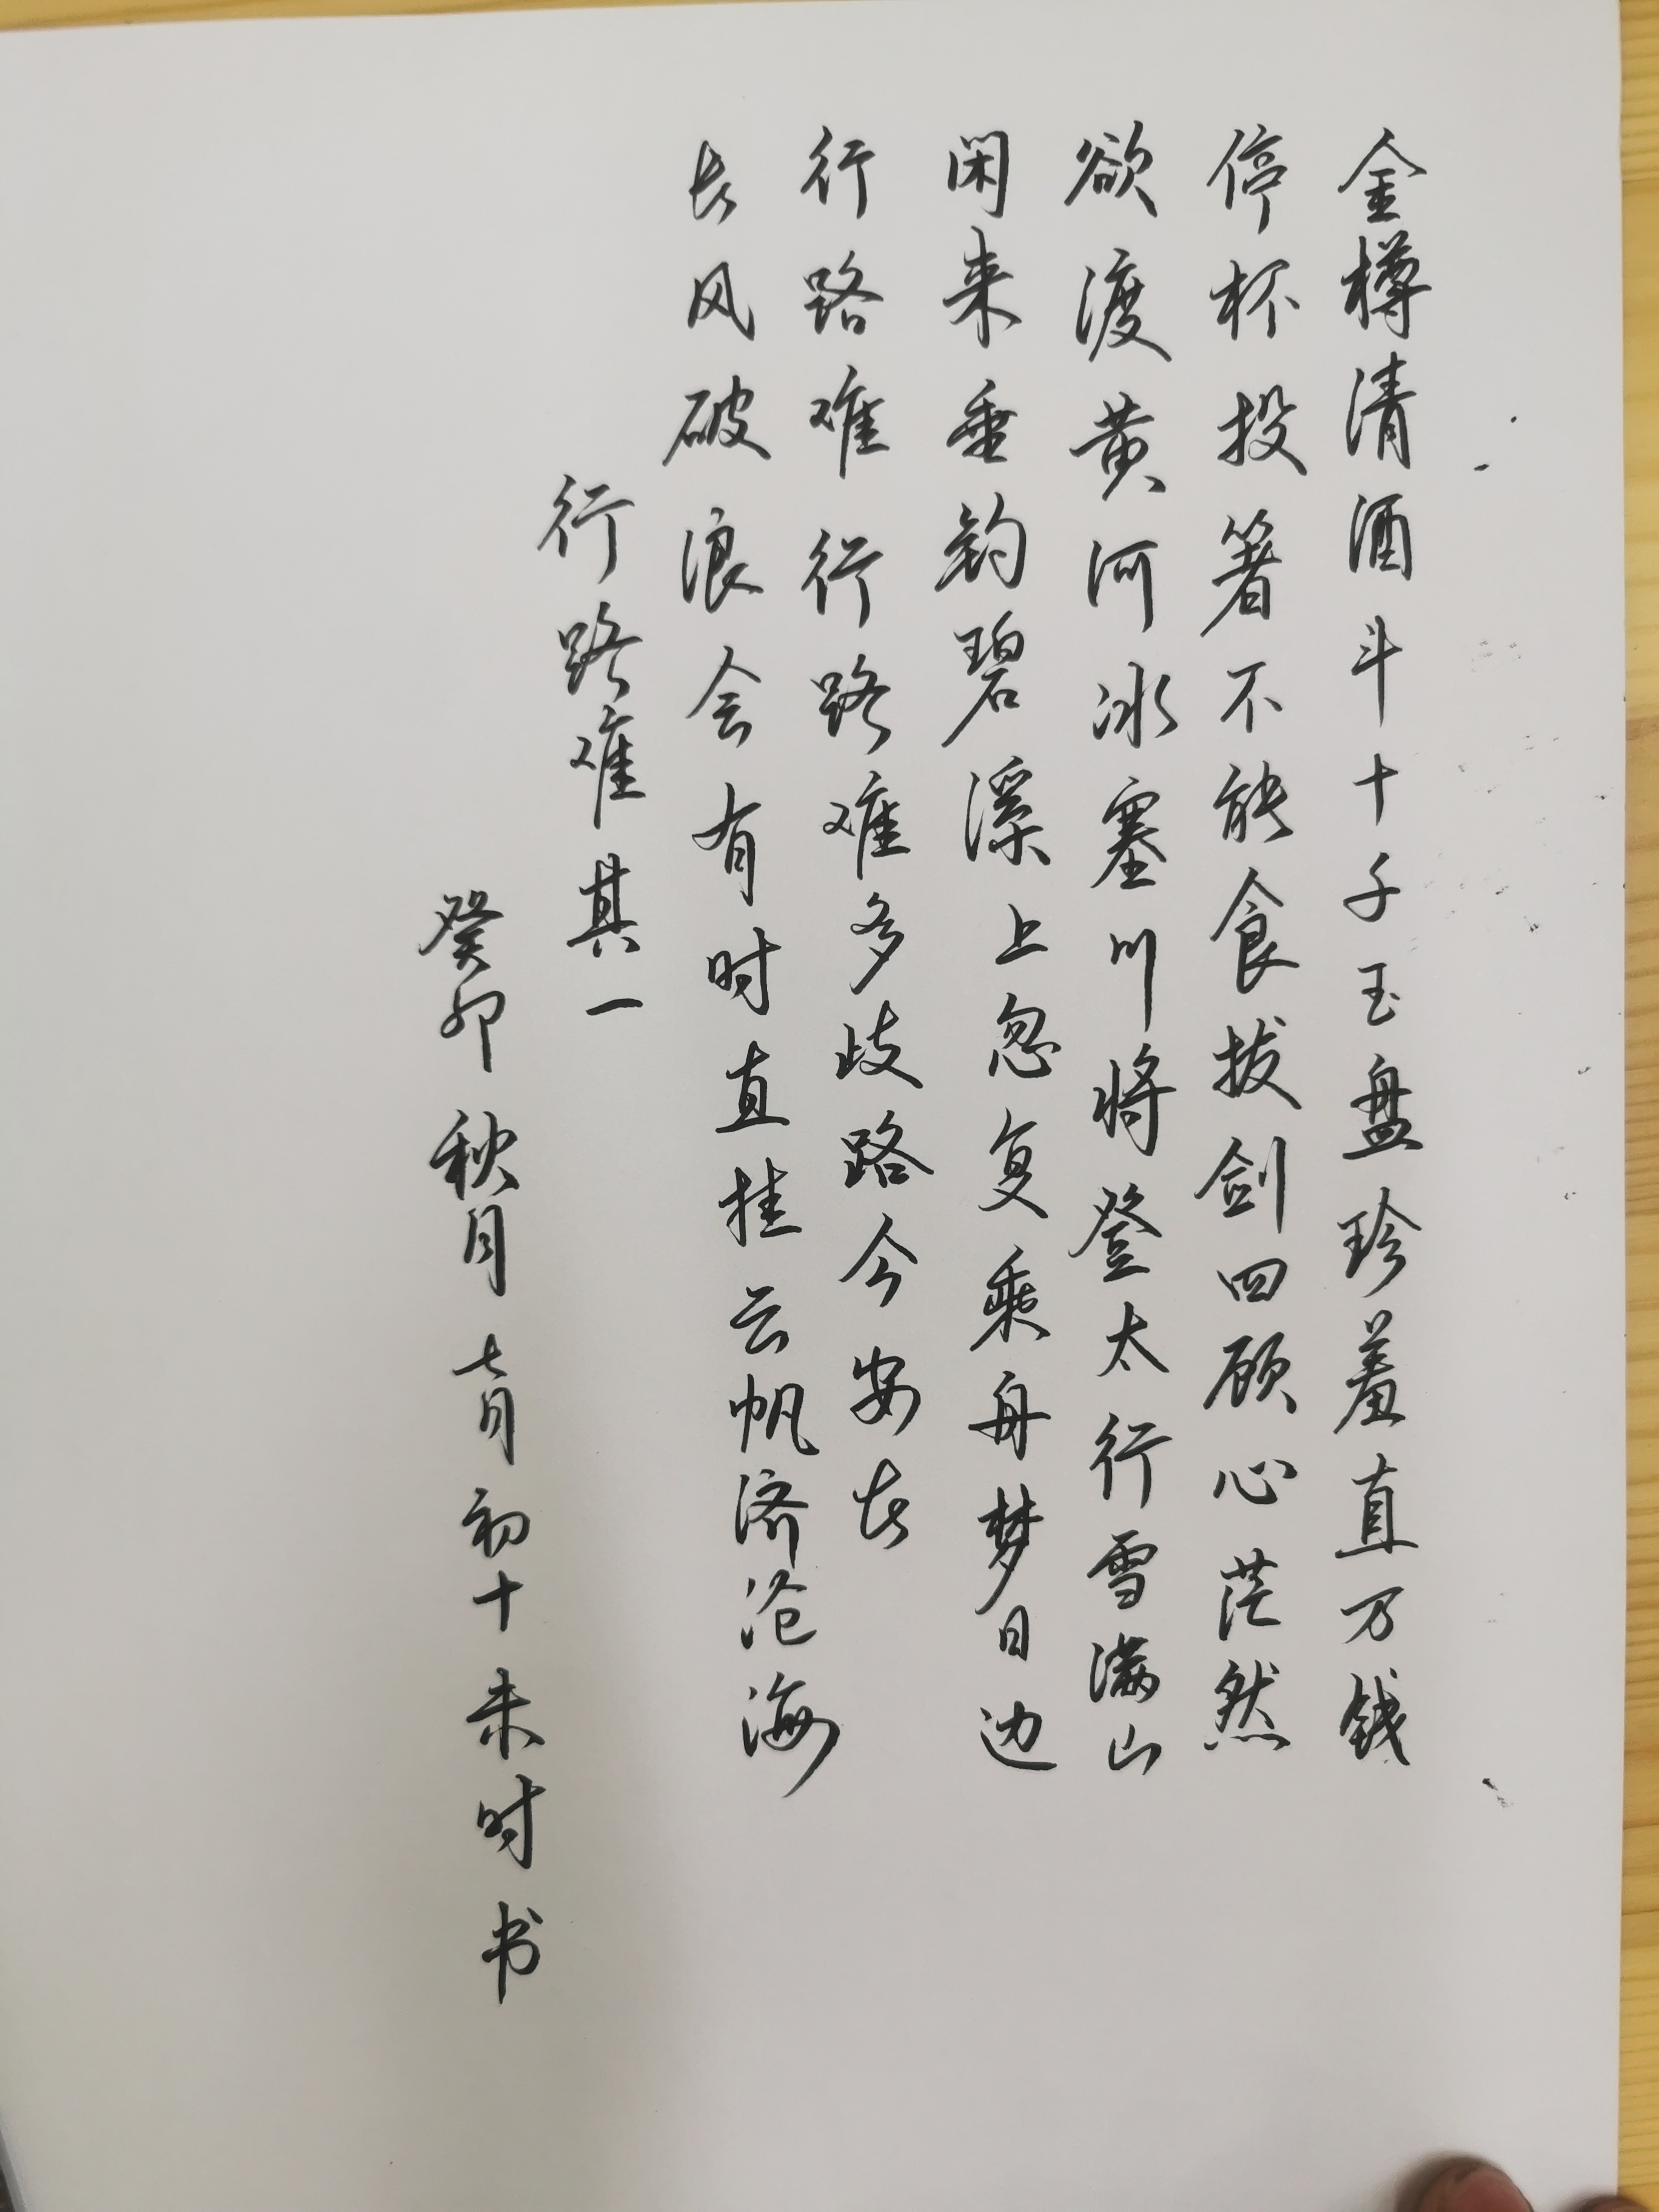 金樽清酒斗十千玉盘珍羞直万钱
停杯投箸不能食拔剑四顾心茫然
欲渡黄河冰塞川将登太行雪满山
闲来垂钓碧溪上忽复乘舟梦日边
行路难行路难多歧路今安在
长风破浪会有时直挂云帆济沧海
行路难其一
癸卯秋月七月初十未时书